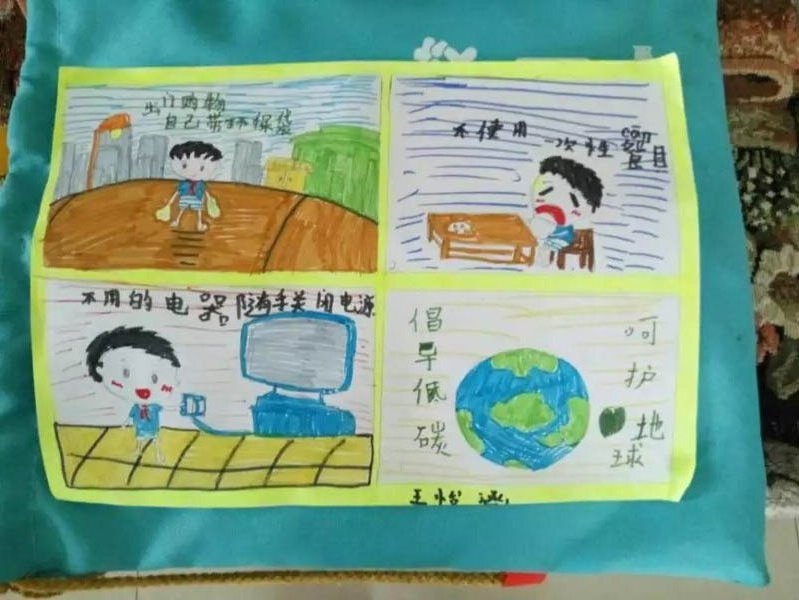 出门购物
自己带环保袋
不使用一次性餐具
不用的电器随手关闭电源
倡导低碳
呵护地球